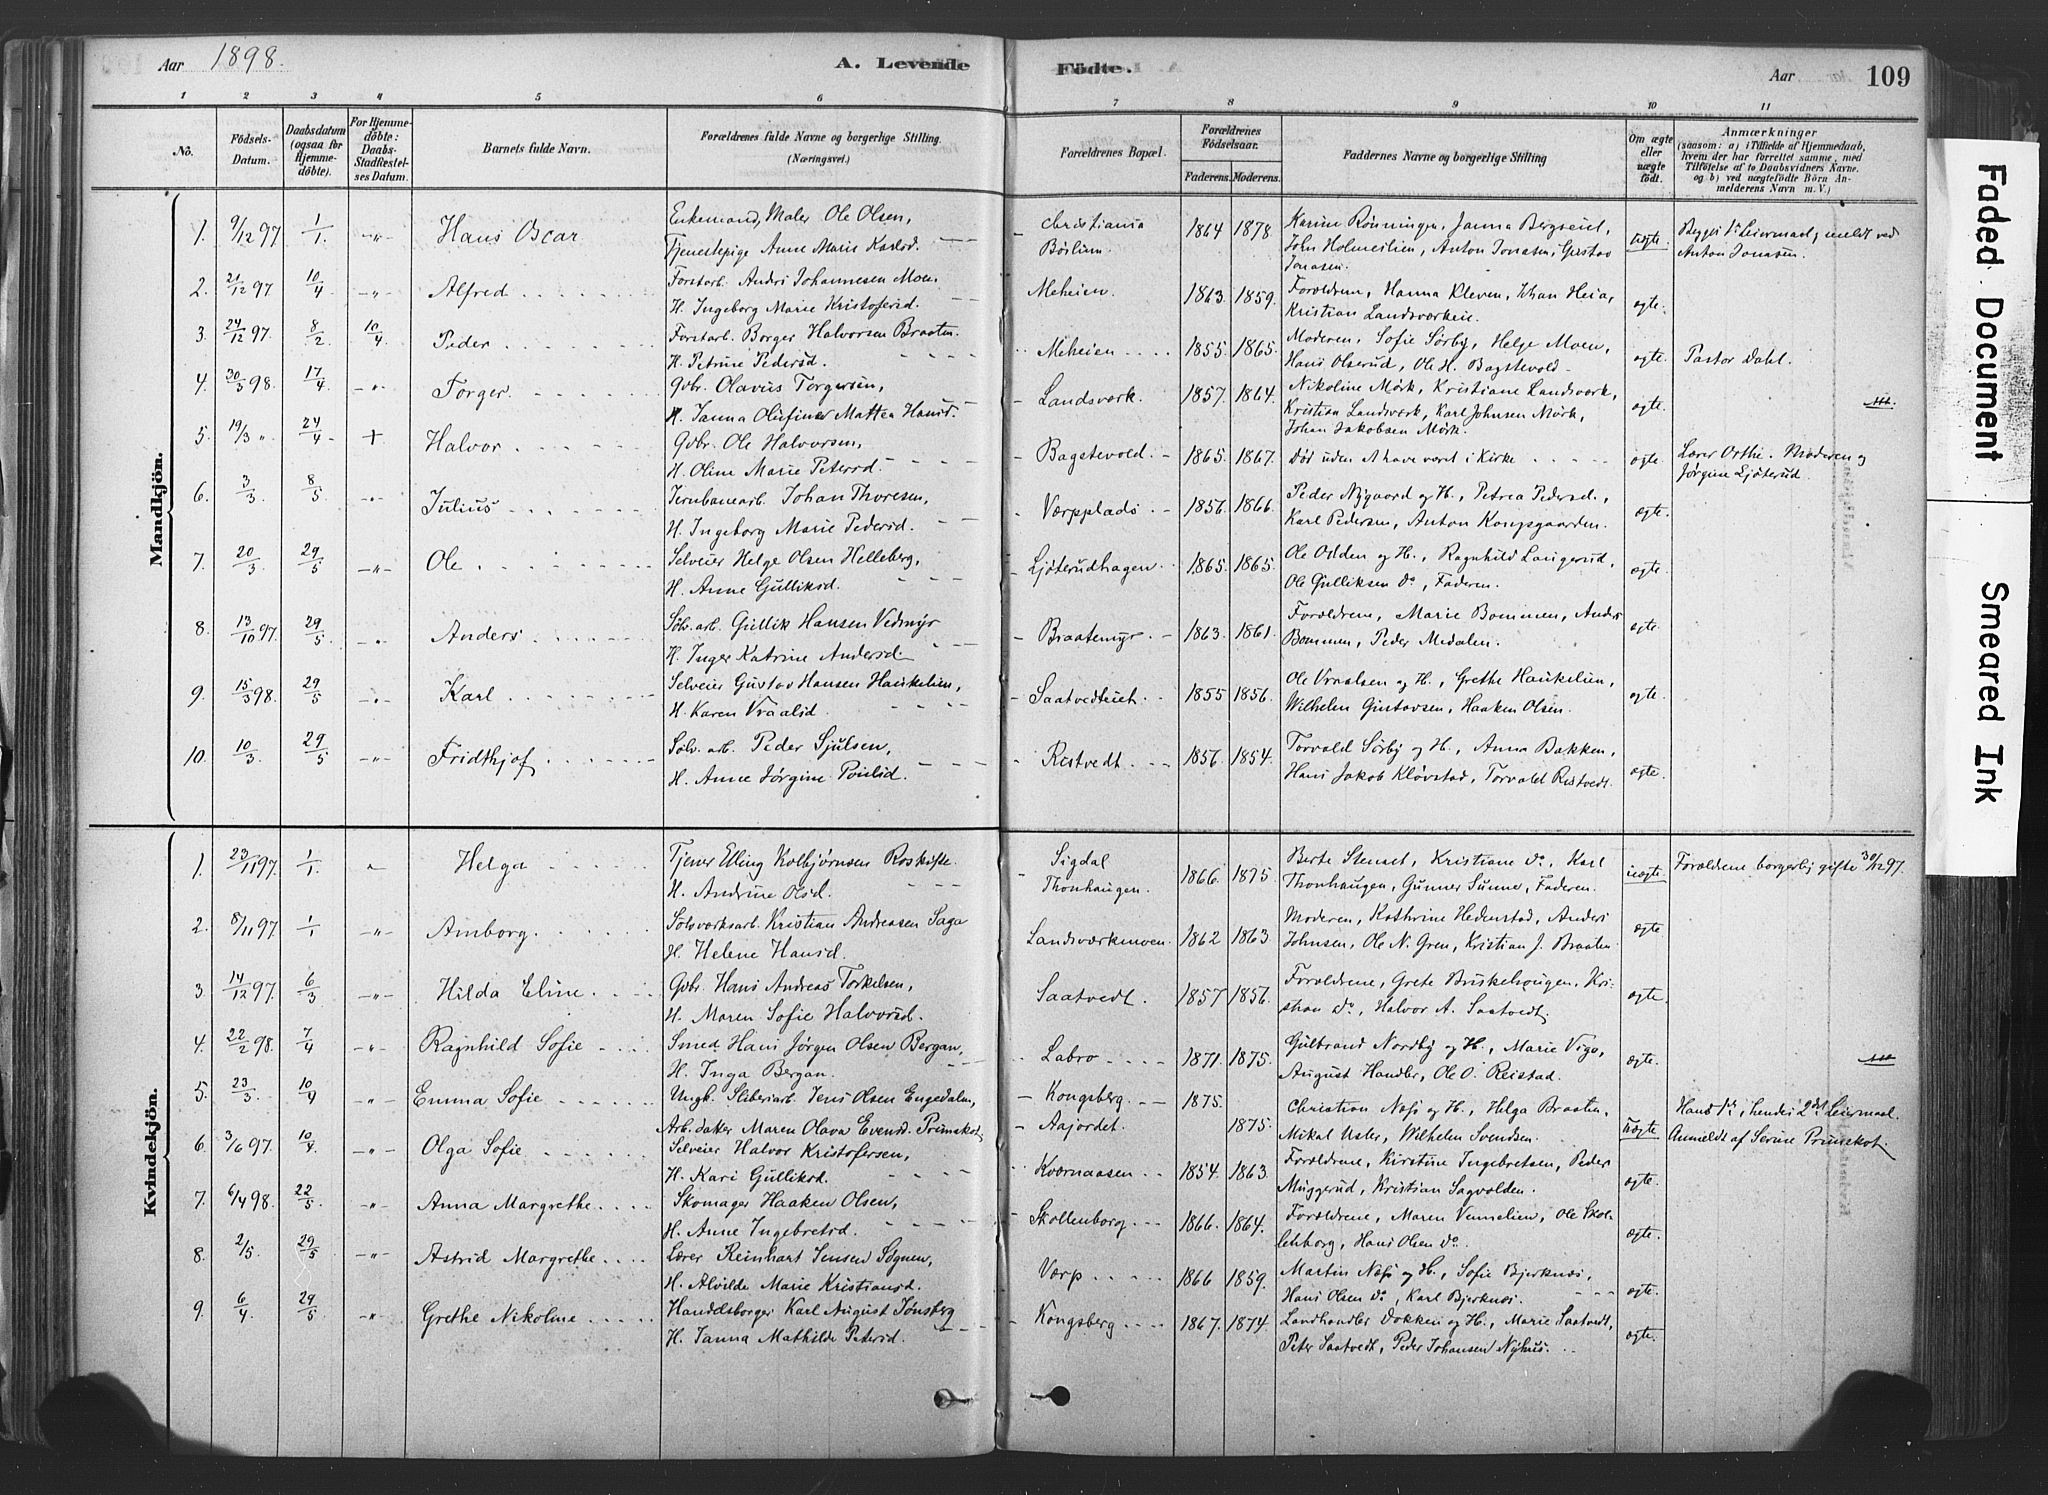 Aar 1898. A. Levende Födte. Aar 109
1 2 3 4 5 6 7 8 9 10 11
No.
Födsels-Datum.
Daabsdatum (ogsaa for Hjemmedöbte).
For Hjemmedöbte: Daabs-Stadfæstelses Datum.
Barnets fulde Navn.
Forældrenes fulde Navne og borgerlige Stilling.
(Næringsvei.)
Forældrenes Bopæl.
Forældrenes Födselsaar.
Faderens. Moderens.
Faddernes Navne og borgerlige Stilling
Om ægte eller uægte födt.
Anmærkninger
(saasom: a) i Tilfælde af Hjemmedaab, hvem der har forrettet samme, med Tilföielse af to Daabsvidners Navne. og b) ved uægtefödte Börn Anmelderens Navn m. V.)
Mandkjön.
1. 9/12 97 1/1 -"- Hans Oscar Enkemand, Maler Ole Olsen, Christiania 1864 1878 Karine Rönningen, Janna Bergseid, uægte. Begges 1ste Leiermaal, meldt ved
Tjenestepige Anne Marie Karlsd. John Holmeilien, Anton Jonasen, Gustav Anton Jonasen.
Jonasen.
2. 21/12 97 10/4 -"- Alfred Forstarb. Anders Johannesen Moen Meheien. 1863. 1859. Forældrene, Hanna Kleven, Johan Heia, ægte.
H. Ingeborg Marie Kristofersd. Kristian Landsværkeie.
3. 24/12 97. 8/2 10/4 Peder Forstarb. Borger Halvorsen Braaten. Meheien 1855. 1865. Moderen, Sofie Sörby, Helge Moen, ægte. Pastor Dahl.
H. Petrine Pedersd. Hans Olserud, Ole H. Bagstevold
4. 30/3 98. 17/4 -"- Torger Gbr. Olavus Torgersen, Landsværk. 1857. 1864. Nikoline Mörk, Kristiane Landsværk, ægte.
H. Janna Olufine Mathea Hansd. Kristian Landsværk, Karl Johnsen Mörk,
Johan Jakobsen Mörk.
5. 19/3 " 24/4 + Halvor Gbr. Ole Halvorsen, Bagstevold. 1865. 1867. Död uden at have været i Kirke ægte. Lærer Orthe. Moderen og
H. Oline Marie Petersd. Jørgine Ljøterud.
6. 3/3 8/5 -"- Julius Jernbanearb. Johan Thoresen, Værpplads 1856. 1866. Peder Nygaard og H., Petrea Pedersd., ægte.
H. Ingeborg Marie Pedersd. Karl Pedersen, Anton Kongsgaarden.
7. 20/3 29/5 -"- Ole Selveier Helge Olsen Helleberg, Ljøterudhagen 1865. 1865. Ole Odden og H., Ragnhild Langerud, ægte.
H. Anne Gulliksd. Ole Gulliksen do, Faderen.
8. 13/10 97. 29/5 -"- Anders Sölv. arb. Gullik Hansen Vedmyr Braatemyr 1863. 1861. Forældrene, Marie Bommen, Anders ægte.
H. Inger Katrine Andersd. Bommen, Peder Medalen.
9. 15/3 98. 29/5 Karl Selveier Gustav Hansen Haukelien, Saatvedteiet 1855 1856. Ole Vraalsen og H., Grethe Haukelien, ægte.
H. Karen Vraalsd. Wilhelm Gustavsen, Haaken Olsen.
10. 10/3 29/5 -"- Fridthjof Sölv. arb. Peder Sjulsen, Restvedt 1856. 1854. Torvald Sörby og H., Anna Bakken, ægte.
H. Anne Jörgine Poulsd. Hans Jakob Klövstad, Torvald Restvedt.
Kvindekjön.
1. 23/11 97. 1/1 " Helga Tjener Elling Kolbjørnsen Roskifte. Sigdal 1866. 1875. Berte Stenset, Kristiane do, Karl uægte Forældrene borgerlig gifte 30/12 97.
H. Andrine Olsd. Thonhaugen. Thonhaugen, Gunner Sunne, Faderen.
2. 8/11 97 1/1 -"- Amborg. Sölvværksarb. Kristian Andreasen Saga Landsværkmoen 1862 1863 Moderen, Kathrine Hedenstad, Anders ægte.
H. Helene Hansd. Johnsen, Ole N. Gren, Kristian J. Braaten
3. 14/12 97. 6/3 -"- Hilda Eline Gbr. Hans Andreas Torkelsen, Saatvedt. 1857 1856. Forældrene, Grete Bruskehougen, Kri- ægte.
H. Maren Sofie Halvorsd. stian do, Halvor A. Saatvedt.
4. 22/2 98. 7/4 -"- Ragnhild Sofie Smed Hans Jørgen Olsen Bergan, Labro 1871. 1875. Gulbrand Nordby og H., Marie Vigo, ægte.
H. Inga Bergan. August Handler, Ole O. Reistad.
5. 23/3. 10/4 -"- Emma Sofie Ungk. Sliberiarb. Jens Olsen Engedalen, Kongsberg. 1875. Christian Næss og H., Helga Braaten, uægte Hans 1ste, hendes 2det Leiermaal.
Arb. datter Maren Olava Evensd. Primskot Aajordet. 1875. Mikal Usler, Wilhelm Svendsen. Anmeldt af Serine Primskot.
6. 3/6 97. 10/4. -"- Olga Sofie Selveier Halvor Kristofersen, Kværnaasen 1854. 1863 Forældrene, Kirstine Ingebretsen, Peder ægte.
H. Kari Gulliksd. Muggerud, Kristian Sagvolden.
7. 6/4 98. 22/5 -"- Anna Margrethe Skomager Haaken Olsen, Skollenborg. 1866. 1864. Forældrene, Maren Vennelien, Ole Skol- ægte.
H. Anne Ingebretsd. lenborg, Hans Olsen do.
8. 2/5. 29/5 -"- Astrid Margrethe Lærer Reinhart Jensen Sognen, Værp 1866 1859. Martin Næss og H., Sofie Bjerknæs, ægte.
H. Alvilde Marie Kristiansd. Hans Olsen do, Karl Bjerknæs.
9. 6/4 29/5 -"- Grethe Nikoline Handelsborger Karl August Jönsberg Kongsberg 1867. 1874. Landhandler Dokken og H., Marie Saatvedt, ægte.
H. Janna Mathilde Petersd. Peter Saatvedt, Peder Johansen Nyhus.
Faded Document
Smeared Ink